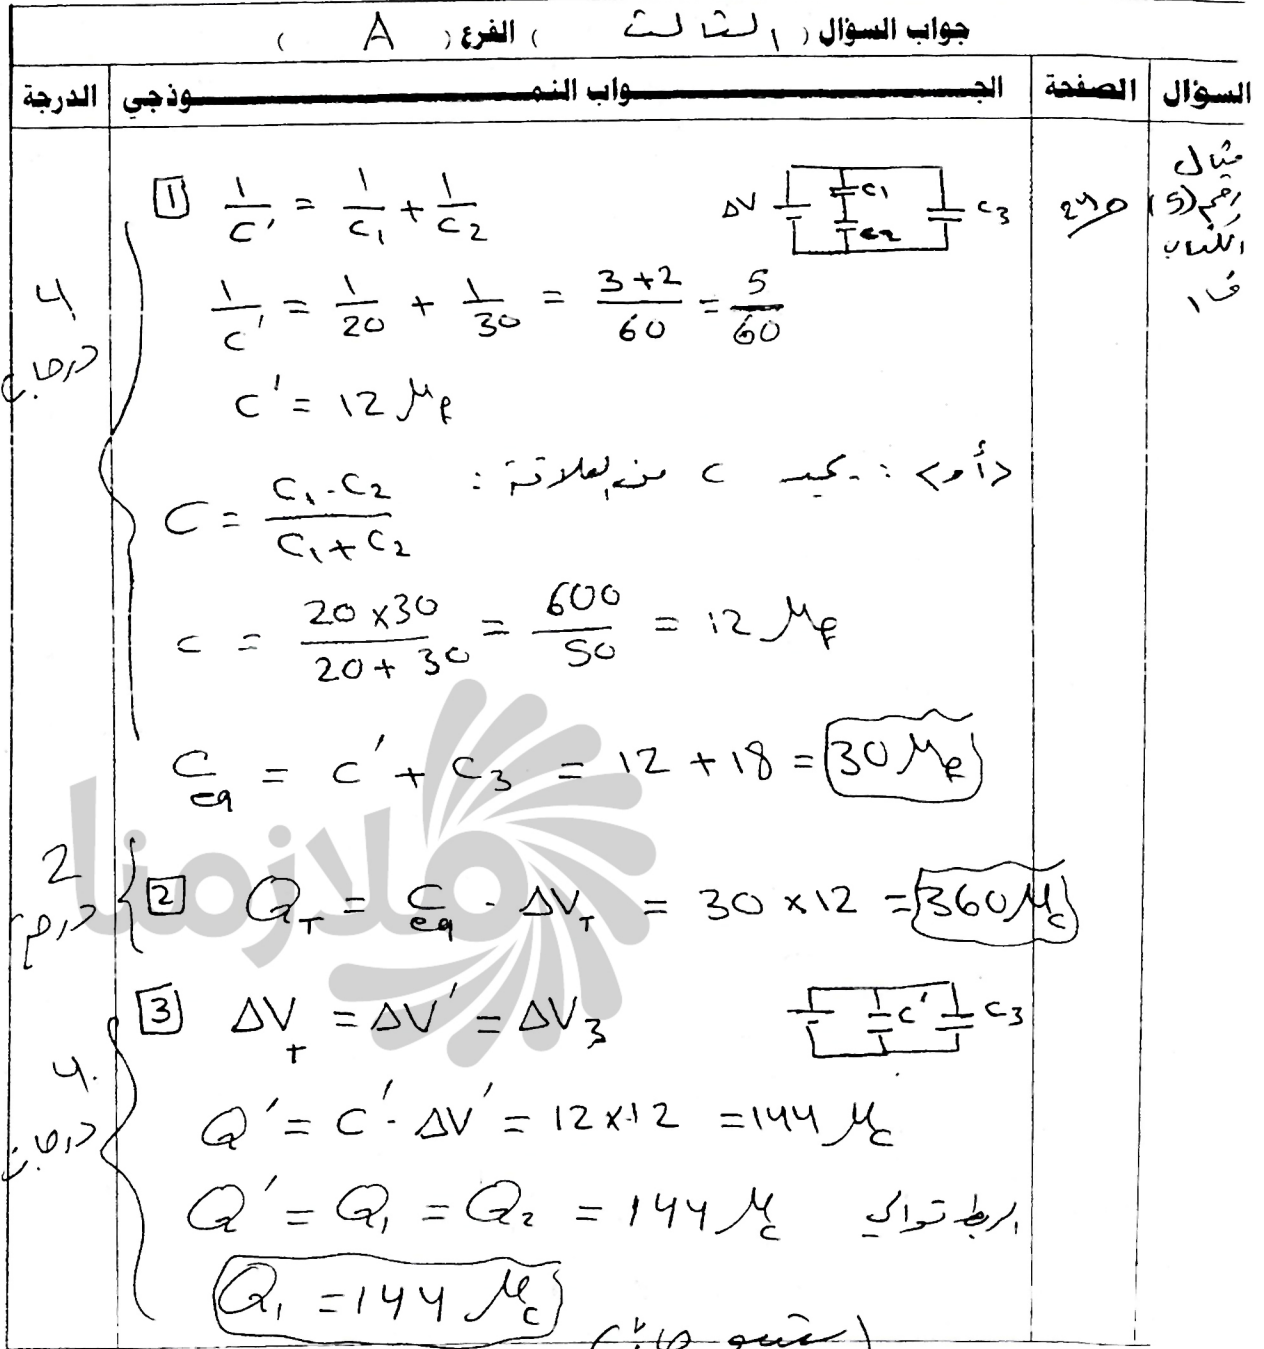 جواب السؤال ( الثالث ) الفرع ( A )
السؤال الصفحة الجـــواب النمـــوذجي الدرجة
مثال
رقم (5)
الكتاب
ف١
ΔV C₁ C₂ C₃
4
درجات
1 1/C' = 1/C₁ + 1/C₂
1/C' = 1/20 + 1/30 = 3+2/60 = 5/60
C' = 12 μF
C من العلاقة :
C = C₁ . C₂ / C₁ + C₂
C = 20 x 30 / 20 + 30 = 600 / 50 = 12 μF
Ceq = C' + C₃ = 12 + 18 = 30 μF
2
2 Q_T = Ceq . ΔV_T = 30 x 12 = 360 μC
3 ΔV_T = ΔV' = ΔV₃
C' C₃
4
درجات
Q' = C' . ΔV' = 12 x 12 = 144 μC
Q' = Q₁ = Q₂ = 144 μC الربط توالي
Q₁ = 144 μC
ملازمنا